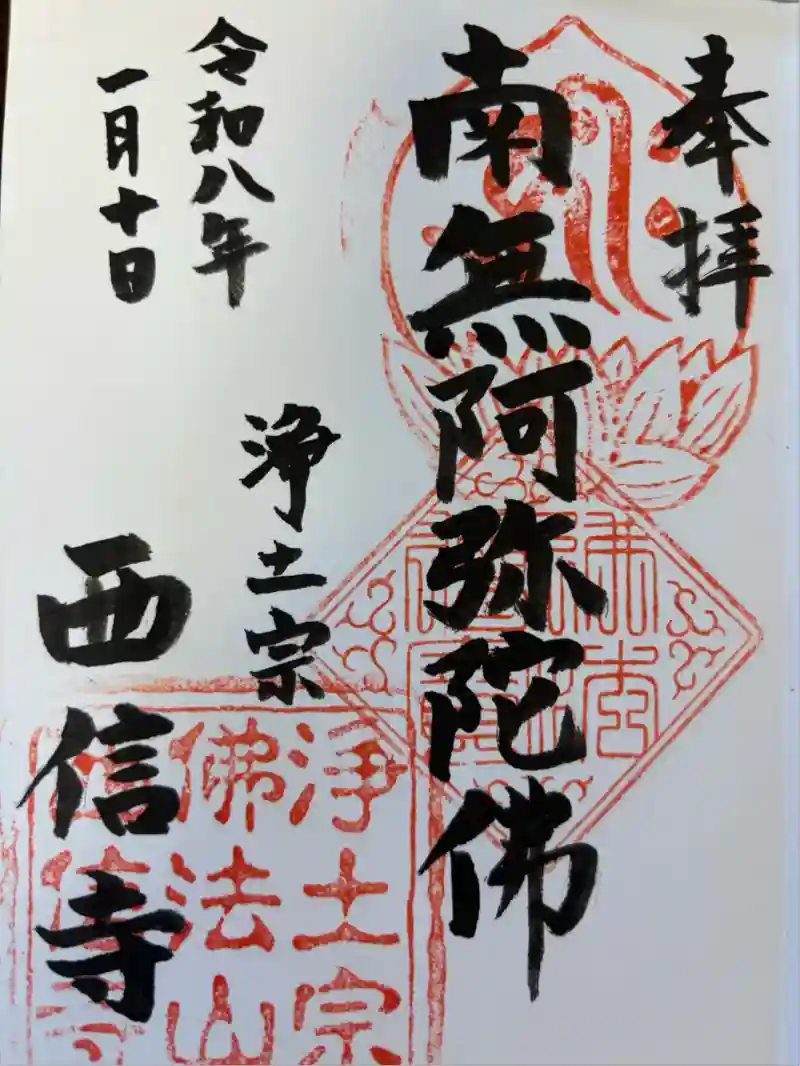 奉拝
南無阿弥陀佛
令和八年
一月十日
浄土宗
西信寺
佛法
浄土宗
佛法山
西信寺